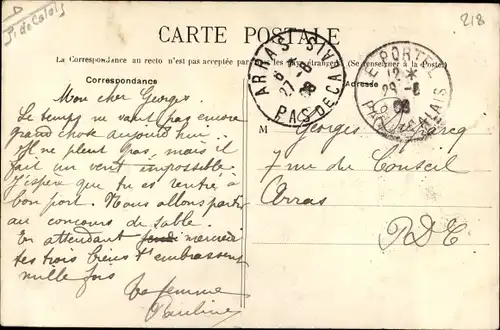 P. de Calais
218
CARTE POSTALE
La Correspondance au recto n'est pas acceptée par tous les pays étrangers (Se renseigner à la Poste)
Correspondance
Adresse
ARRAS PAS DE CALAIS
27 -8
08
LE PORTEL PAS DE CALAIS
12 *
29 -8
08
Mon cher Georges.
Le temps ne vaut pas encore
grand chose aujourd'hui.
Il ne pleut pas, mais il
fait un vent impossible
J'espère que tu es rentré à
bon port. Nous allons partir
au concours de sable.
En attendant
tes trois t'embrassent
mille fois
Ta femme
Pauline
M Georges
7 rue du Conseil
Arras
P.D.C